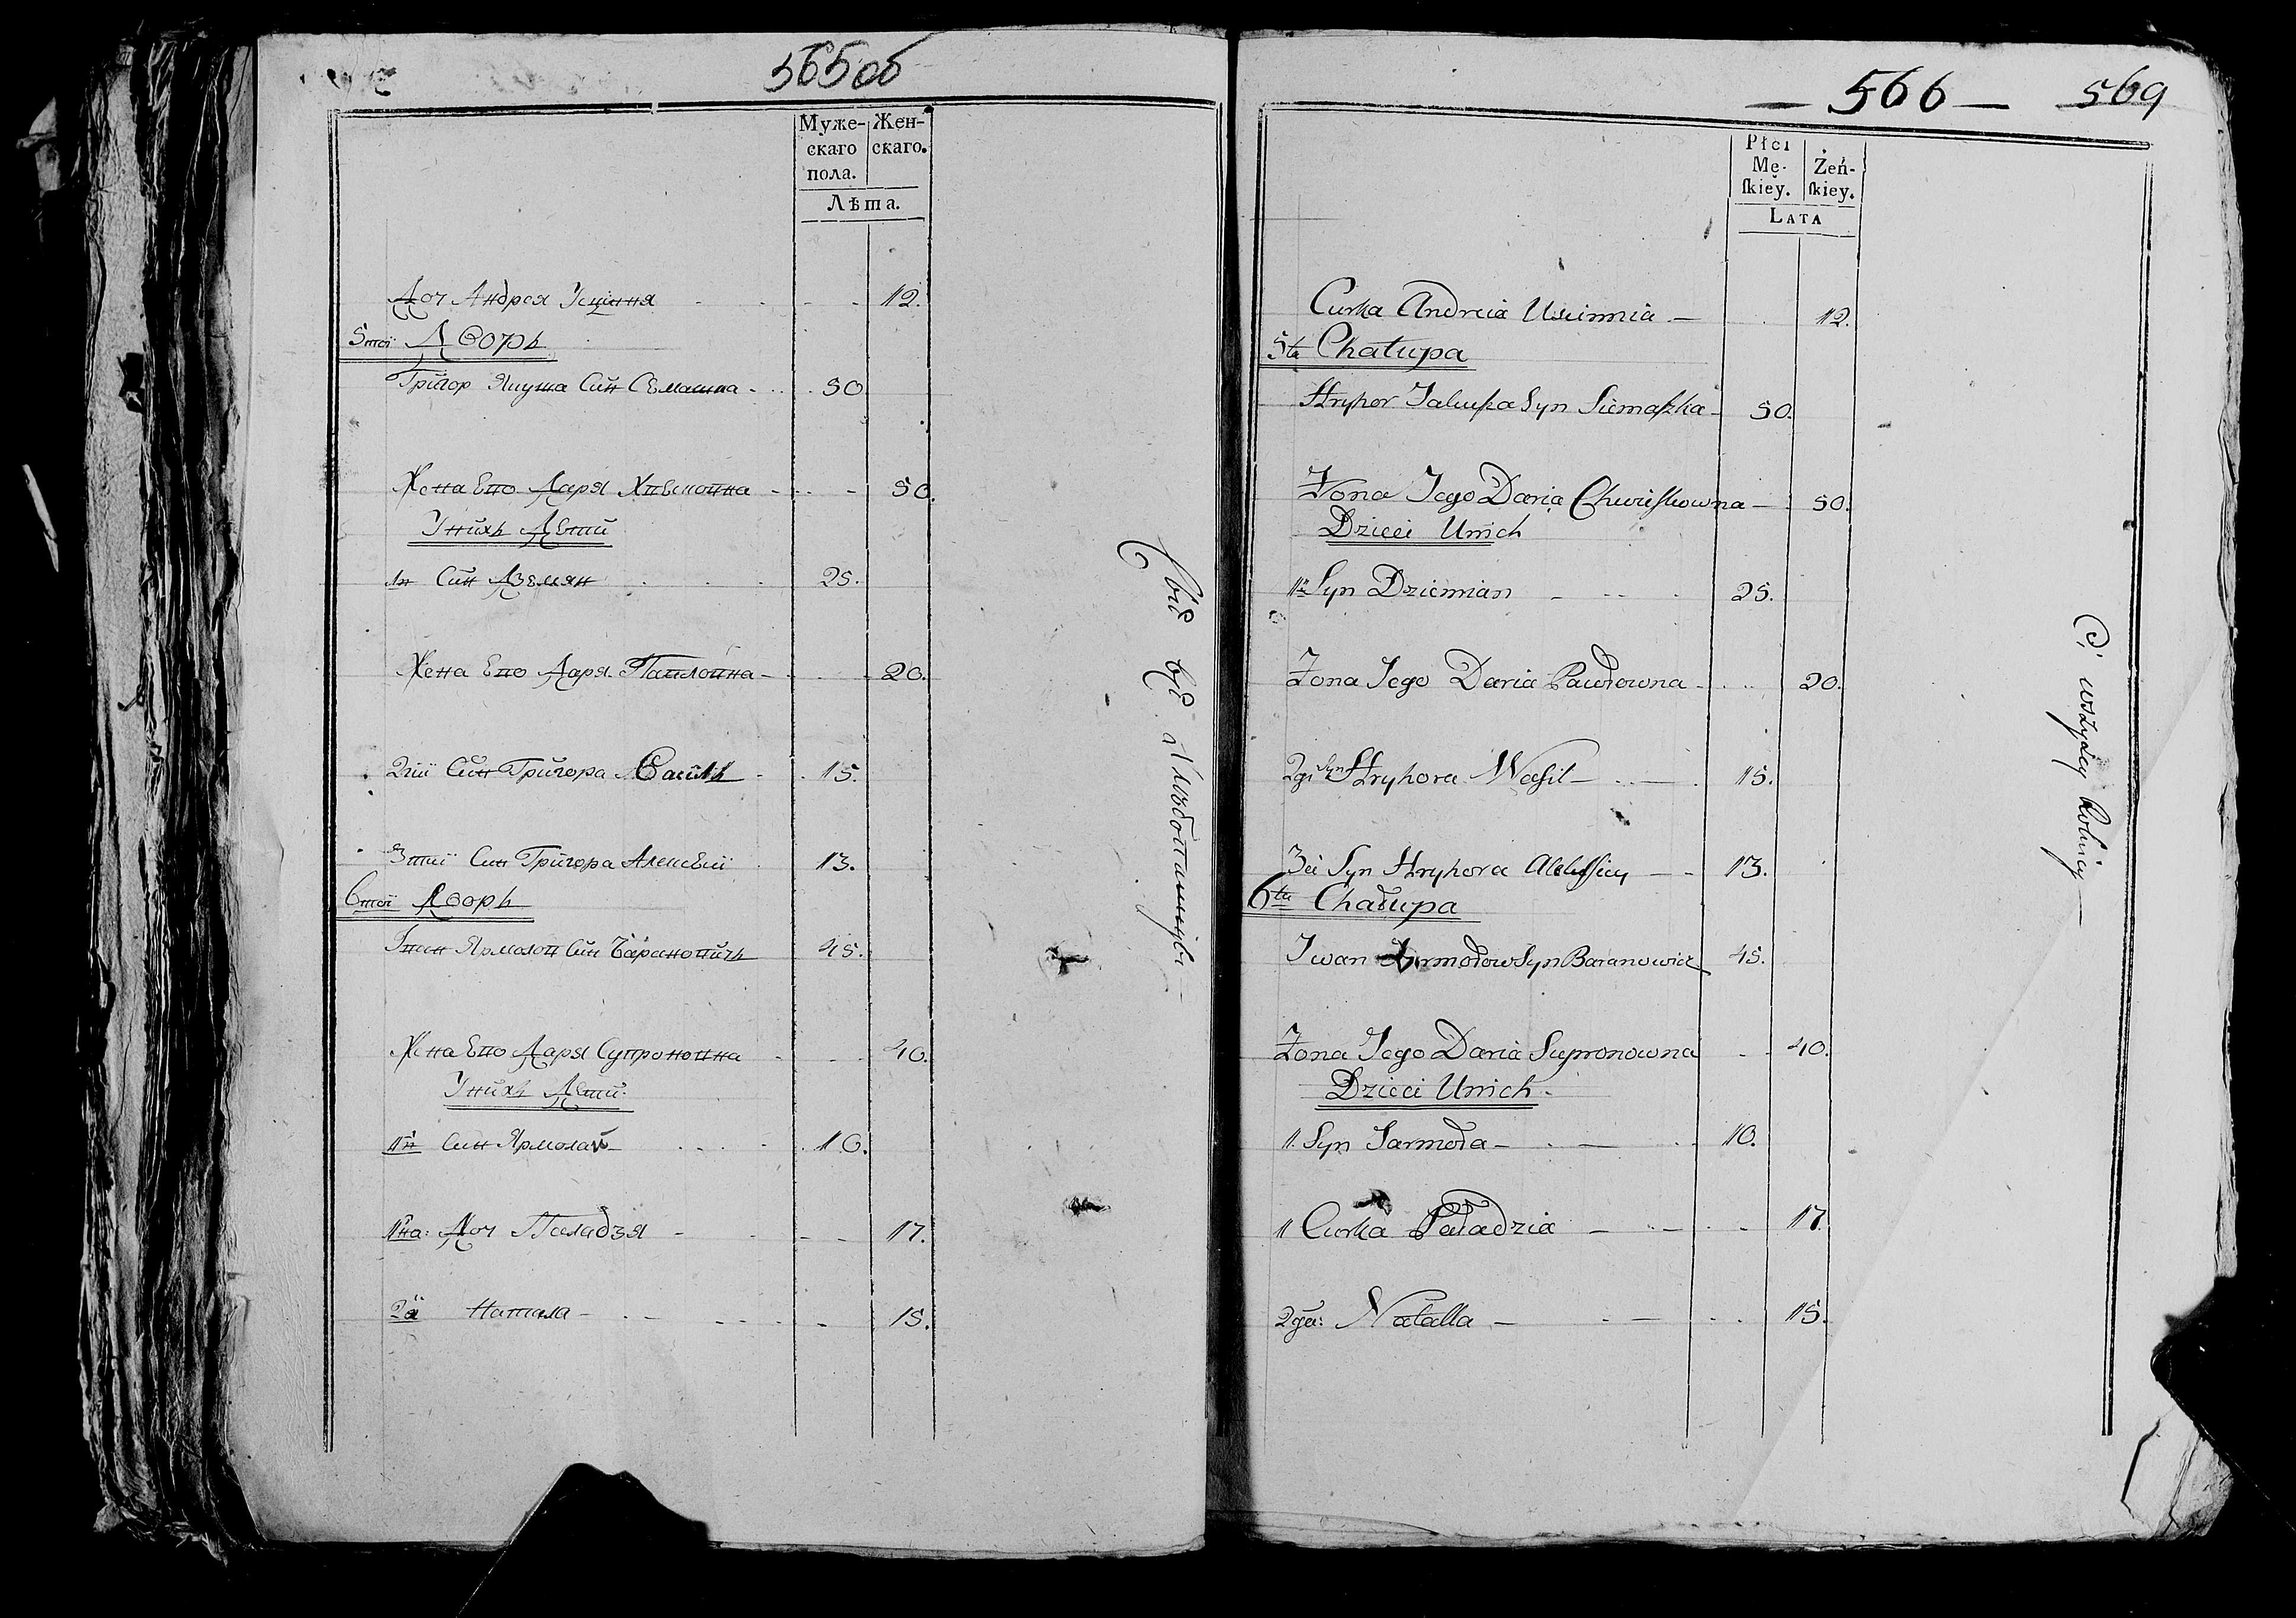 565об
Муже- Жен-
скаго скаго.
пола.
Лѣта.
Доч Андрея Усціння 12.
5тої Дворъ
Григор Якуша Син Семашка 50
Жена Его Даря Хвеськовна 50.
У нихъ Дети
1й Син Дземян 25.
Жена Его Даря Павловна 20.
2гиі Син Григора Василь 15.
3тиі Син Григора Алексей 13.
6тої Дворъ
Іван Ярмолов Син Барановичъ 45.
Жена Его Даря Супроновна 40.
У нихъ Дети
1й Син Ярмолай 10.
1на: Доч Паладзя 17.
2а Натала 15.
566 569
Płci
Mę- Żeń-
ſkiey. ſkiey.
Lata
Curka Andreia Uścimia 12.
5ta Chałupa
Hryhor Jakuſza Syn Siemaſzka 50.
Żona Jego Daria Chwieſkowna 50.
Dzieci U nich
1n Syn Dziemian 25.
Żona Jego Daria Pawłowna 20.
2gi Syn Hryhora Waſil 15.
3ci Syn Hryhora Alekſiey 13.
6ta Chałupa
Iwan Jarmołow Syn Baranowicz 45.
Żona Jego Daria Supronowna 40.
Dzieci U nich
1. Syn Jarmoła 10.
1 Curka Paładzia 17.
2ga: Natalla 15.
Ci wszyscy Rolnicy